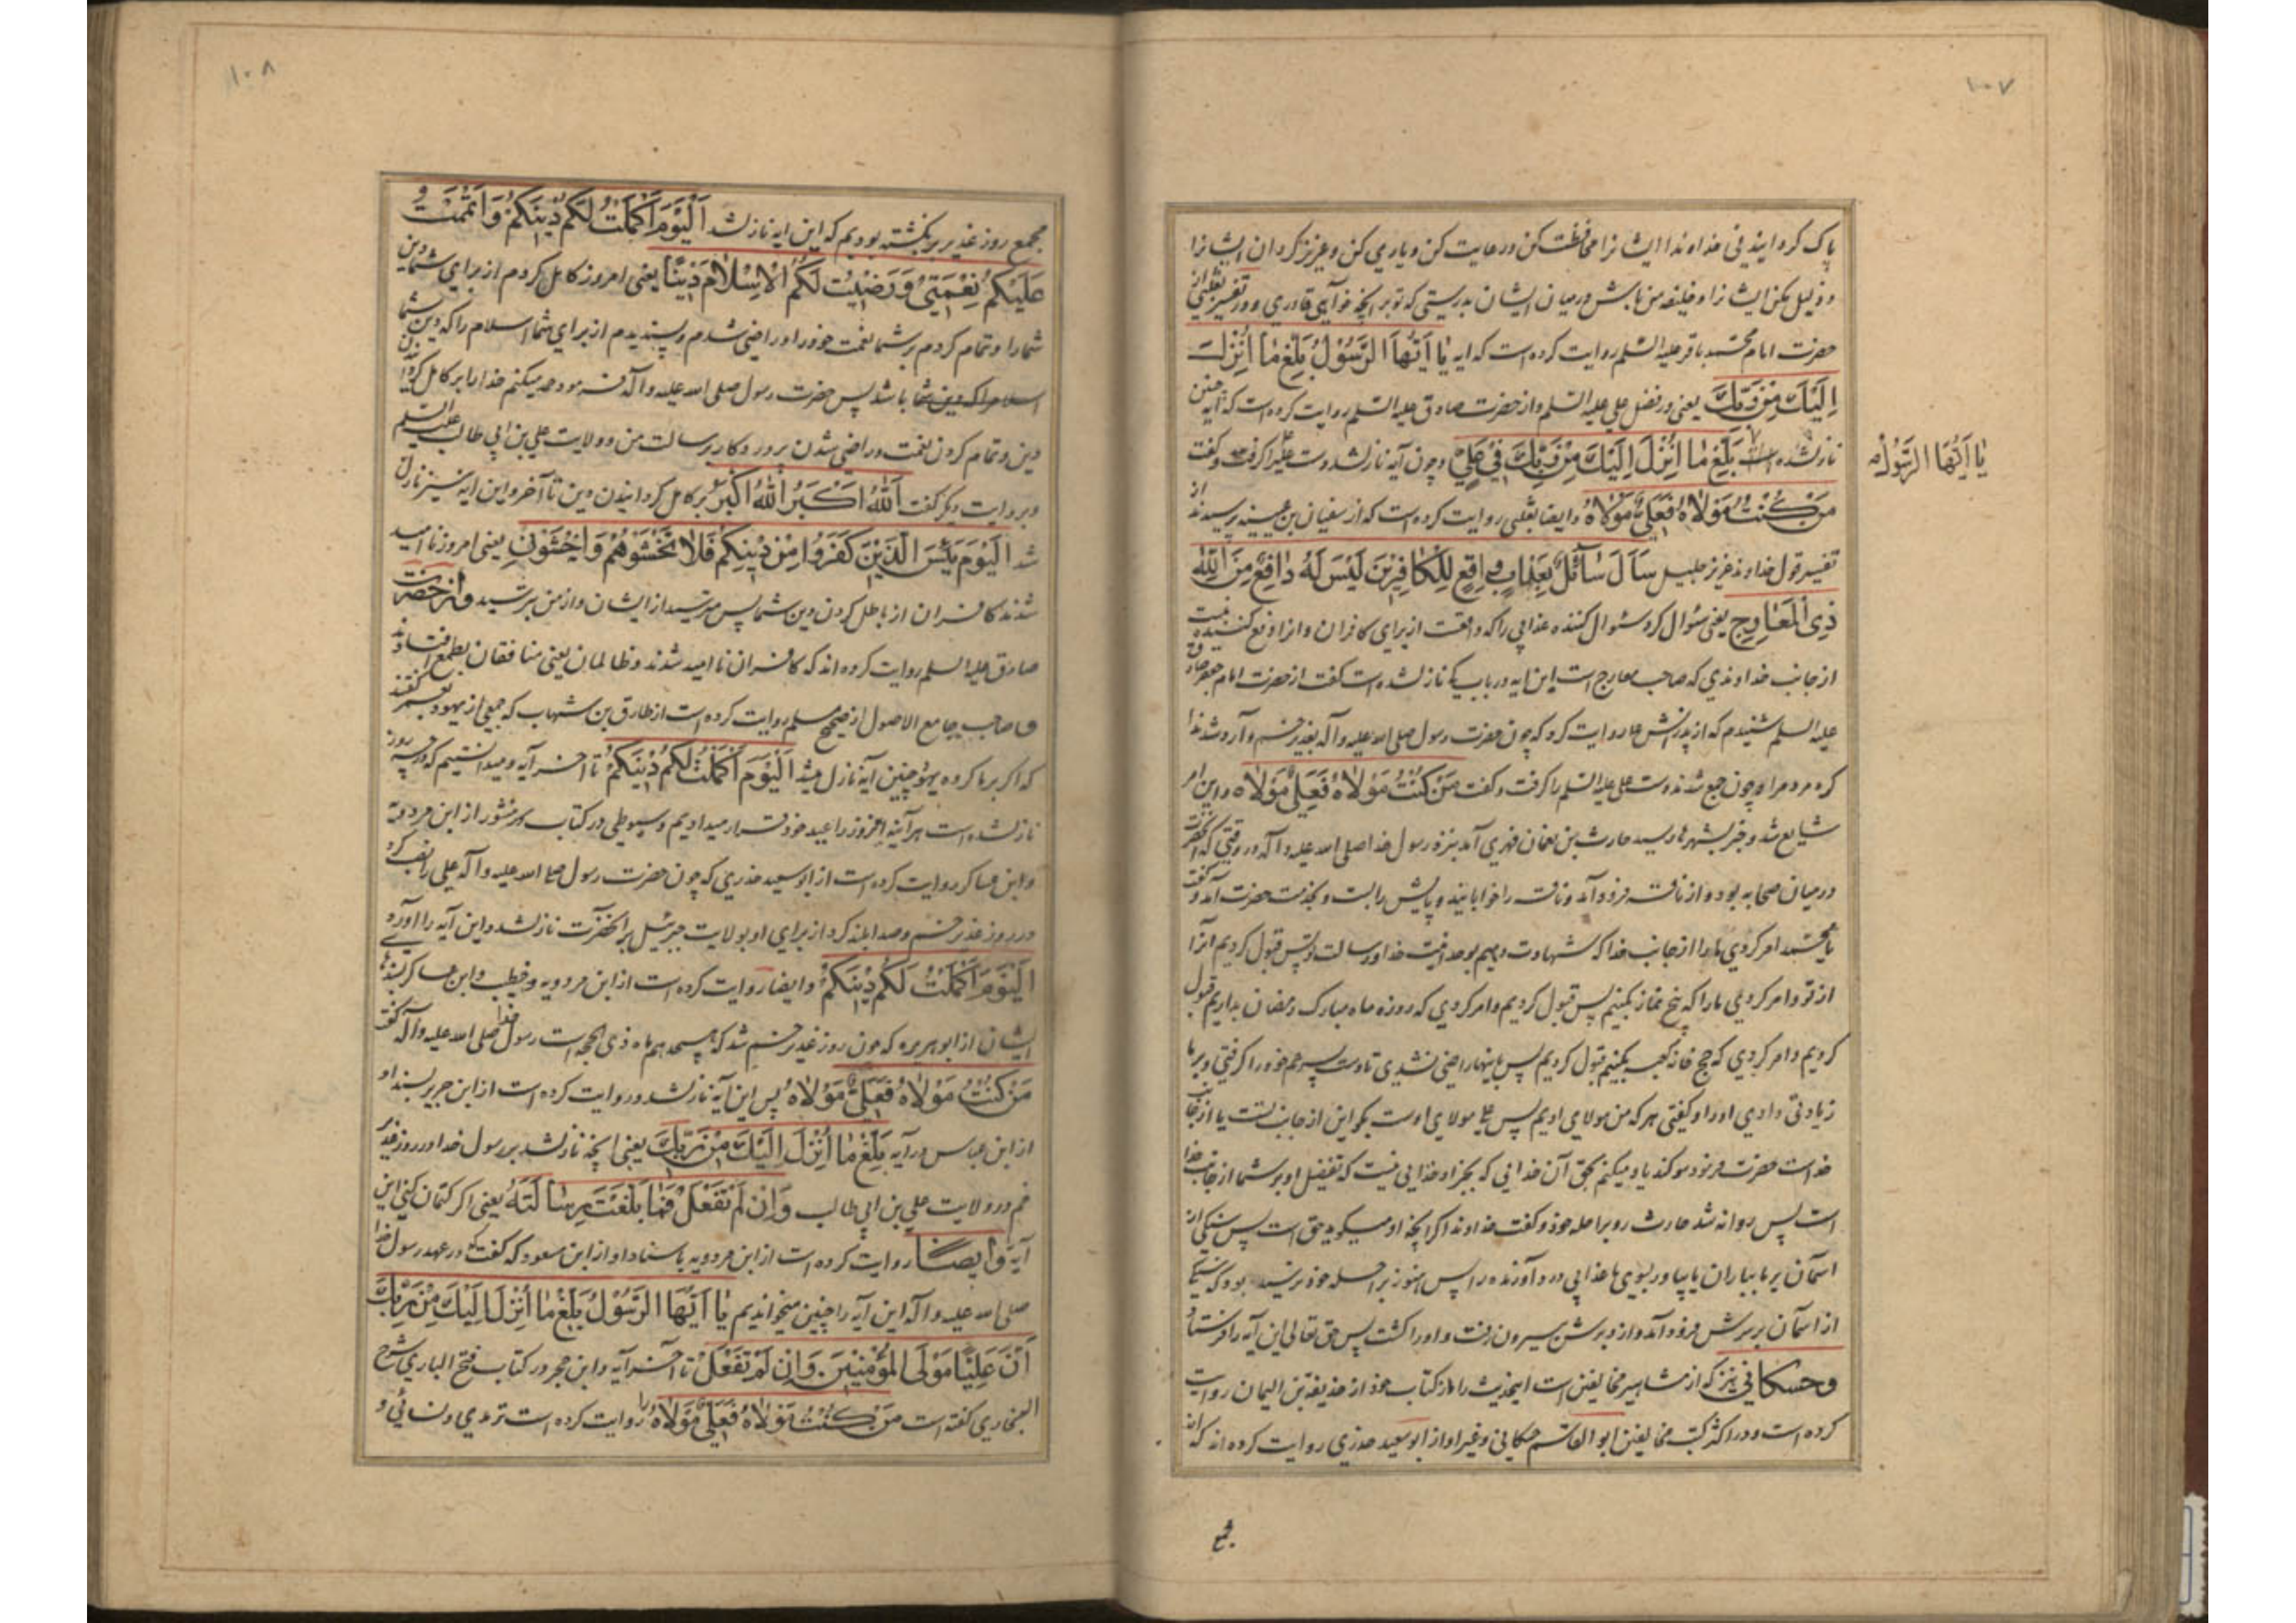 ۱۰۷
پاک کردایندنی خداوندا ایشانرا محافظت کن و رعایت کن و یاری کن و عزیز گردان ایشانرا
و ذلیل مکن ایشانرا و خلیفه من باش در میان ایشان بدرستی که تو بر آنچه خواهی قادری و در تفسیر ثعلبی از
حضرت امام محمد باقر علیه السلم روایت کرده است که ایه یٰا اَیُّهَا الرَّسُولُ بَلِّغ مٰا اُنْزِلَ
اِلَیْكَ مِنْ رَبِّكَ یعنی در فضل علی علیه السلم و از حضرت صادق علیه السلم روایت کرده است که آیه چنین
نازلشده است بَلِّغ مٰا اُنْزِلَ اِلَیْكَ مِنْ رَبِّكَ فِی عَلِیٍّ و چون آیه نازلشد دست علی را گرفت و گفت
یٰا اَیُّهَا الرَّسُولُ
مَنْ کُنْتُ مَوْلاٰهُ فَعَلِیٌّ مَوْلاٰهُ و ایضا ثعلبی روایت کرده است که از سفیان بن عیینه پرسیدند از
تفسیر قول خداوند عزیز جلیل سَاَلَ سٰآئِلٌ بِعَذٰابٍ وٰاقِعٍ لِلْکٰافِرِیْنَ لَیْسَ لَهُ دٰافِعٌ مِنَ اللّٰهِ
ذِی الْمَعٰارِجِ یعنی سئوال کرد سئوال کننده عذابی را که واقعست از برای کافران و انرا دفع کننده نیست
از جانب خداوندی که صاحب معارج است این ایه در باب که نازلشده است گفت از حضرت امام جعفر صادق
علیه السلم شنیدم که از پدرانش روایت کرد که چون حضرت رسول صلی الله علیه و آله بغدیر خم وارد شد ندا
کرد مردم را و چون جمع شدند دست علی علیه السلم را گرفت و گفت مَنْ کُنْتُ مَوْلاٰهُ فَعَلِیٌّ مَوْلاٰهُ و این امر
شایع شد و خبر بشهرها رسید حارث بن نعمان فهری آمد بنزد رسول خدا صلی الله علیه و آله در وقتی که آنحضرت
در میان صحابه بود و از ناقه فرود آمد و ناقه را خوابانید و پایش را بست و بخدمت حضرت آمد و گفت
یا محمد امر کردی ما را از جانب خدا که شهادت دهیم بوحدانیت خدا و رسالت تو پس قبول کردیم انرا
از تو و امر کردی ما را که پنج نماز بکنیم پس قبول کردیم و امر کردی که روزه ماه مبارک رمضان بداریم قبول
کردیم و امر کردی که حج خانه کعبه بکنیم قبول کردیم پس باینها راضی نشدی تا دست پسر عم خود را گرفتی و بر ما
زیادتی دادی او را و گفتی هر که من مولای اویم پس علی مولای اوست بگو این از جانب تست یا از جانب
خداست حضرت فرمود سوگند یاد میکنم بحق آن خدائی که بجز او خدایی نیست که تفضیل او بر شما از جانب خدا
است پس روانه شد حارث رو براحله خود و گفت خداوندا اگر آنچه او میگوید حق است پس سنگی از
آسمان بر ما بباران یا بیاور بسوی ما عذابی درد آورنده را پس هنوز براحله خود نرسیده بود که سنگی
از آسمان بر سرش فرود آمد و از دبرش بیرون رفت و او را کشت پس حق تعالی این آیه را فرستاد
و حسکانی نیز که از مشاهیر مخالفین است اینحدیث را در کتاب خود از حذیفة بن الیمان روایت
کرده است و در اکثر کتب مخالفین ابو القاسم حسکانی و غیر او از ابو سعید خدری روایت کرده اند که از
مجمع
۱۰۸
مجمع روز غدیر برنگشته بودیم که این ایه نازلشد اَلْیَوْمَ اَکْمَلْتُ لَکُمْ دِیْنَکُمْ وَ اَتْمَمْتُ
عَلَیْکُمْ نِعْمَتِیْ وَ رَضِیْتُ لَکُمُ الْاِسْلٰامَ دِیْنًا یعنی امروز کامل کردم از برای شما دین
شما را و تمام کردم بر شما نعمت خود را و راضی شدم و پسندیدم از برای شما اسلام را که دین شما
اسلام را که دین شما باشد پس حضرت رسول صلی الله علیه و آله فرمود حمد میکنم خدا را بر کامل گردانیدن
دین و تمام کردن نعمت و راضی شدن پروردگار برسالت من و ولایت علی بن ابی طالب علیه السلم
و بروایت دیگر گفت اَللّٰهُ اَکْبَرُ اَللّٰهُ اَکْبَرُ بر کامل گردانیدن دین تا آخر و این ایه نیز نازل
شد اَلْیَوْمَ یَئِسَ الَّذِیْنَ کَفَرُوا مِنْ دِیْنِکُمْ فَلاٰ تَخْشَوْهُمْ وَاخْشَوْنِ یعنی امروز نا امید
شدند کافران از باطل کردن دین شما پس مترسید از ایشان و از من بترسید و از حضرت
صادق علیه السلم روایت کرده اند که کافران نا امید شدند و ظالمان یعنی منافقان بطمع افتادند
و صاحب جامع الاصول از صحیح مسلم روایت کرده است از طارق بن شهاب که جمعی از یهود بعمر گفتند
که اگر بر ما گروه یهود چنین آیه نازل میشد اَلْیَوْمَ اَکْمَلْتُ لَکُمْ دِیْنَکُمْ تا آخر آیه و میدانستیم که در چه روز
نازلشده است هر آینه امروز را عید خود قرار میدادیم و سیوطی در کتاب در منثور از ابن مردویه
و ابن عساکر روایت کرده است از ابو سعید خدری که چون حضرت رسول صلی الله علیه و آله علی را نصب کرد
در روز غدیر خم و صدا بلند کرد از برای او بولایت جبرئیل بر آنحضرت نازلشد و این آیه را آورد
اَلْیَوْمَ اَکْمَلْتُ لَکُمْ دِیْنَکُمْ و ایضا روایت کرده است از ابن مردویه و خطیب و ابن عساکر بسندهای
ایشان از ابو هریره که چون روز غدیر خم شد که هیجدهم ماه ذی الحجه است رسول خدا صلی الله علیه و آله گفت
مَنْ کُنْتُ مَوْلاٰهُ فَعَلِیٌّ مَوْلاٰهُ پس این آیه نازلشد و روایت کرده است از ابن جریر بسند او
از ابن عباس در آیه بَلِّغْ مٰا اُنْزِلَ اِلَیْكَ مِنْ رَبِّكَ یعنی آنچه نازلشد بر رسول خدا در روز غدیر
خم در ولایت علی بن ابی طالب وَ اِنْ لَمْ تَفْعَلْ فَمٰا بَلَّغْتَ رِسٰالَتَهُ یعنی اگر کتمان کنی این
آیه و ایضا روایت کرده است از ابن مردویه باسناد او از ابن مسعود که گفت که در عهد رسول خدا
صلی الله علیه و آله این آیه را چنین میخواندیم یٰا اَیُّهَا الرَّسُولُ بَلِّغْ مٰا اُنْزِلَ اِلَیْكَ مِنْ رَبِّكَ
اَنَّ عَلِیًّا مَوْلَی الْمُؤْمِنِیْنَ وَ اِنْ لَمْ تَفْعَلْ تا آخر آیه و ابن حجر در کتاب فتح الباری شرح
البخاری گفته است مَنْ کُنْتُ مَوْلاٰهُ فَعَلِیٌّ مَوْلاٰهُ را روایت کرده است ترمذی و نسائی و